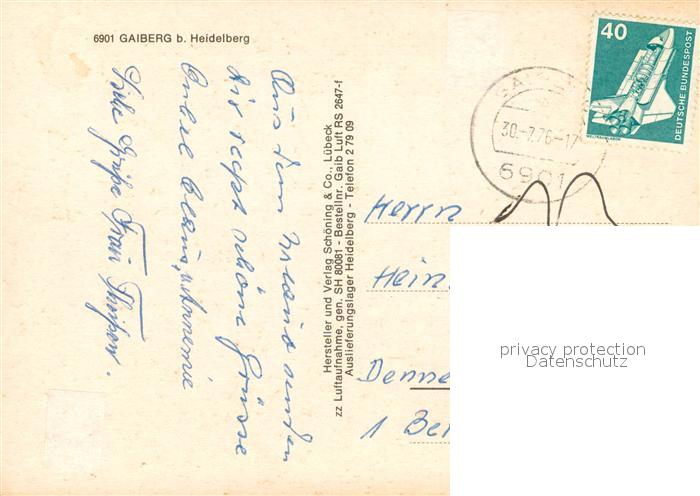 6901 GAIBERG b. Heidelberg
Aus dem Urlaub senden
dir recht schöne Grüsse
Onkel Claus, u. Annemie
Liebe Grüße Frau
Hersteller und Verlag Schöning & Co., Lübeck
zz Luftaufnahme, gen. SH 80081 - Bestellnr. Gaib Luft RS 2647-f
Auslieferungslager Heidelberg - Telefon 2 79 09
40
DEUTSCHE BUNDESPOST
WELTRAUMLABOR
30.-7.76-17
6901
Herrn
Hein
Denne
1 Ber
privacy protection
Datenschutz